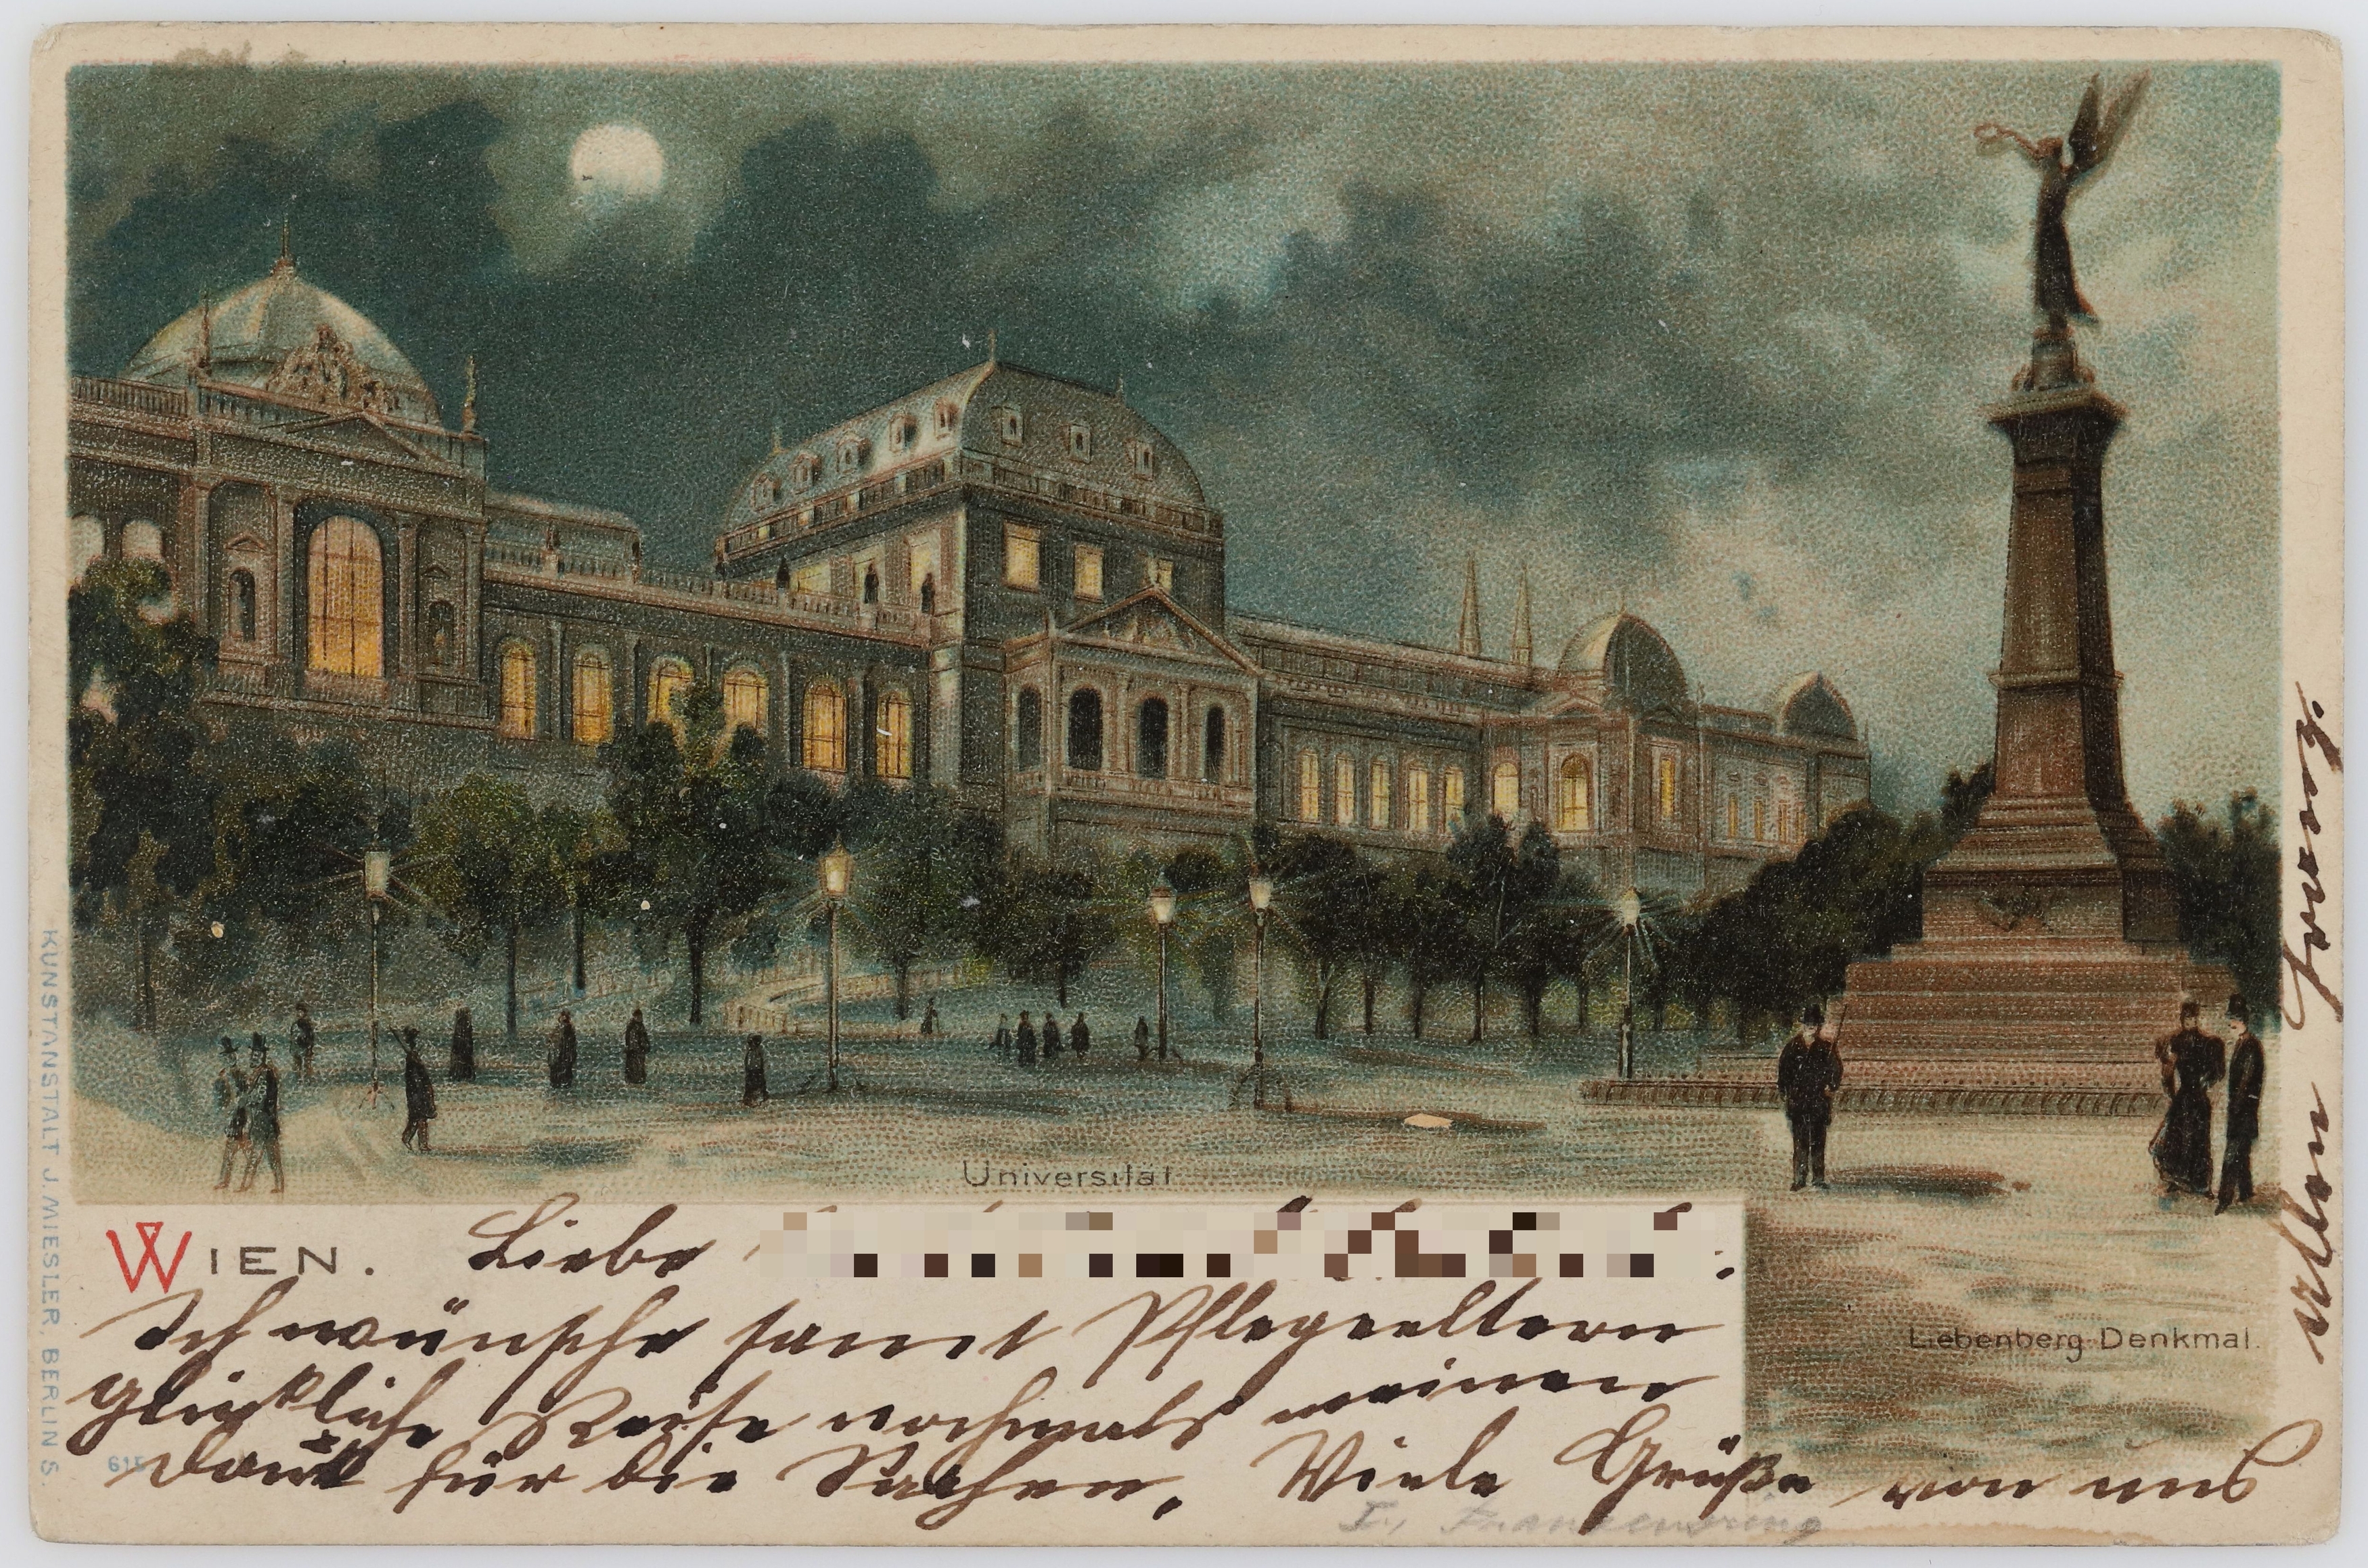 Universität
WIEN.
Liebe
Ich wünsche samt Pflegeeltern
glückliche Reise nochmals meinen
Dank für die Sachen. Viele Grüße von uns
allen Franz.
Liebenberg-Denkmal.
I., Franzensring
KUNSTANSTALT J. MIESLER, BERLIN S.